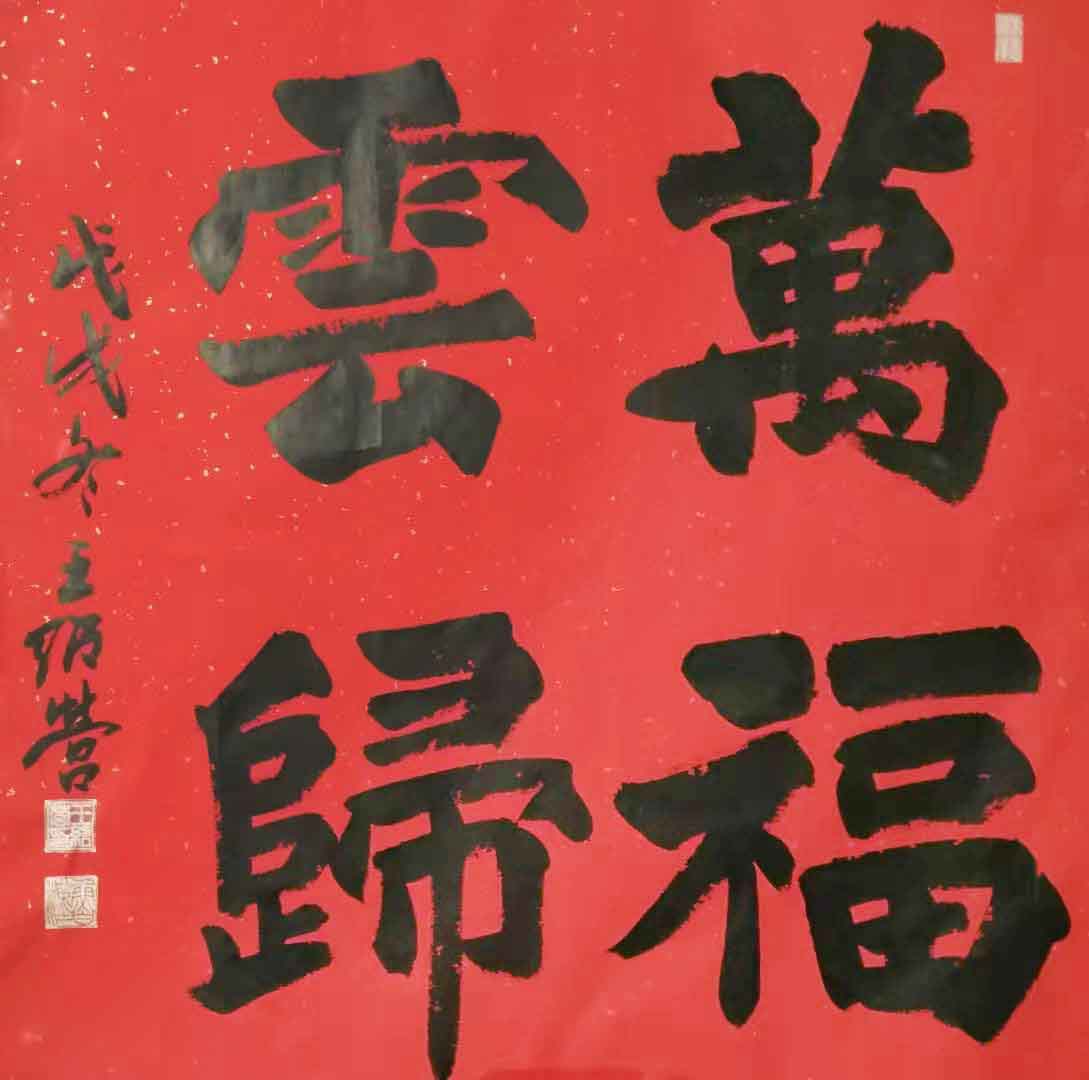 萬福
雲歸
戊戌冬王炳營